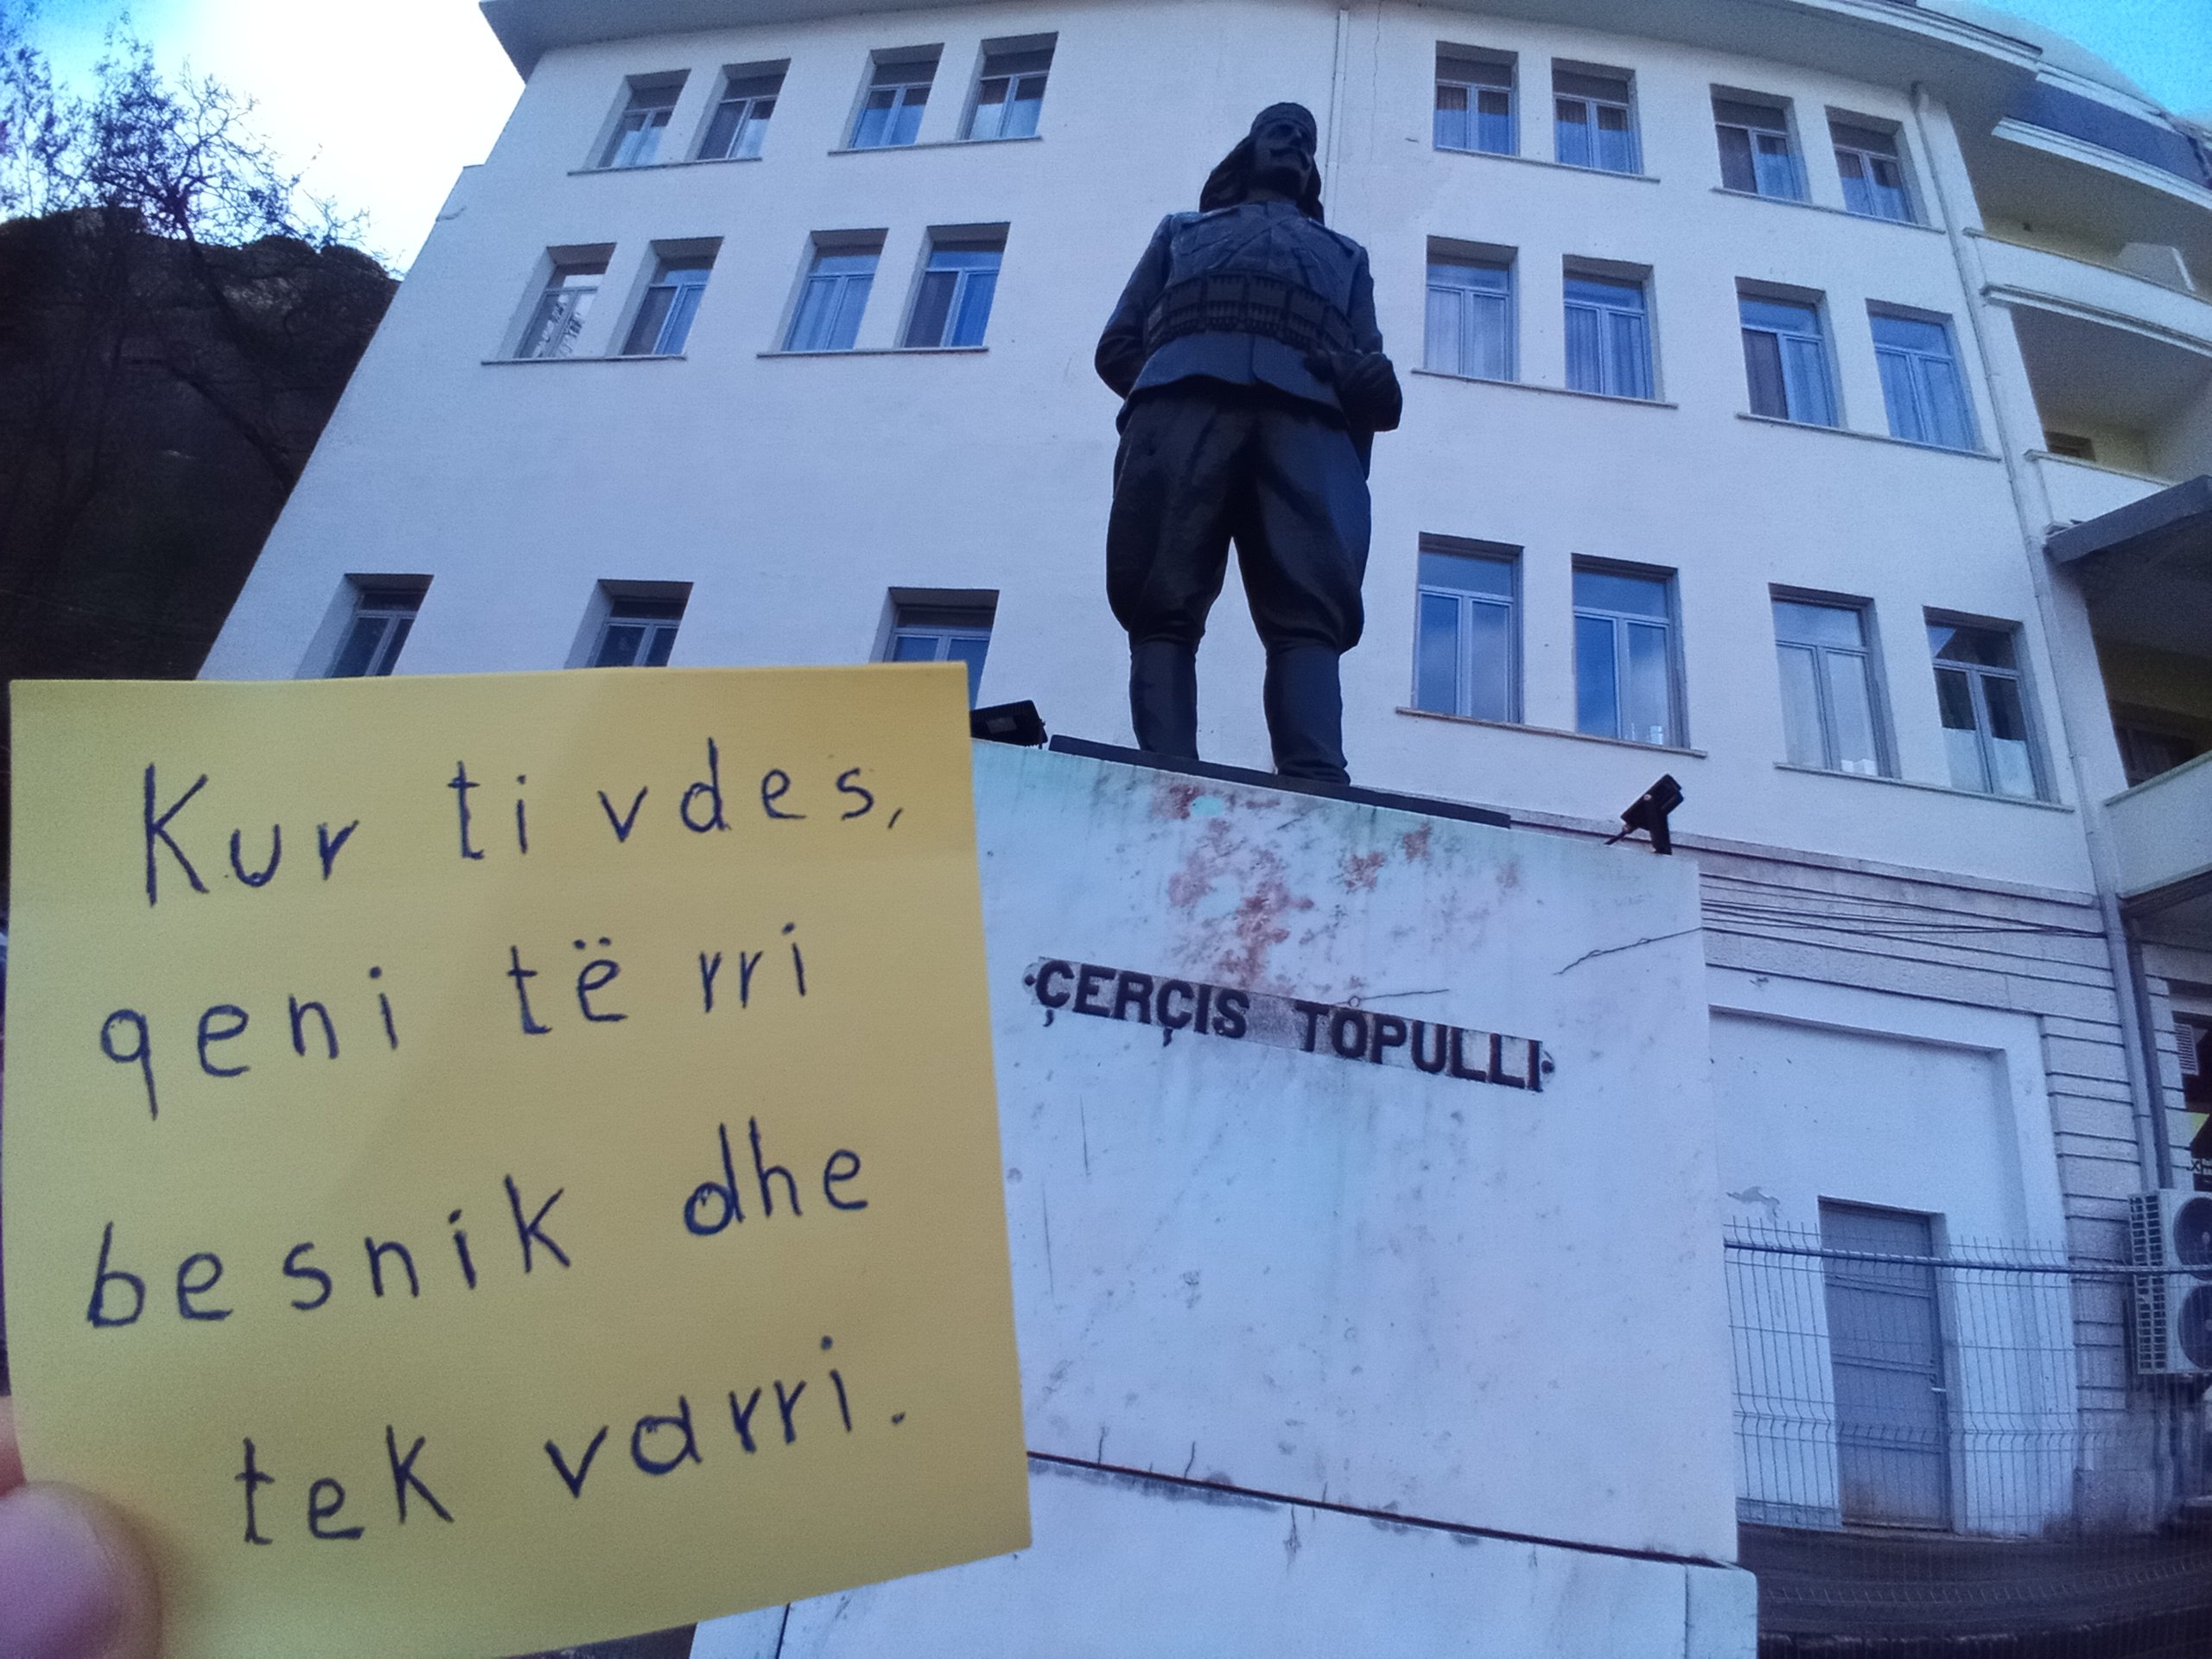 Kur ti vdes,
qeni të rri
besnik dhe
tek varri.
·ÇERÇIS TOPULLI·